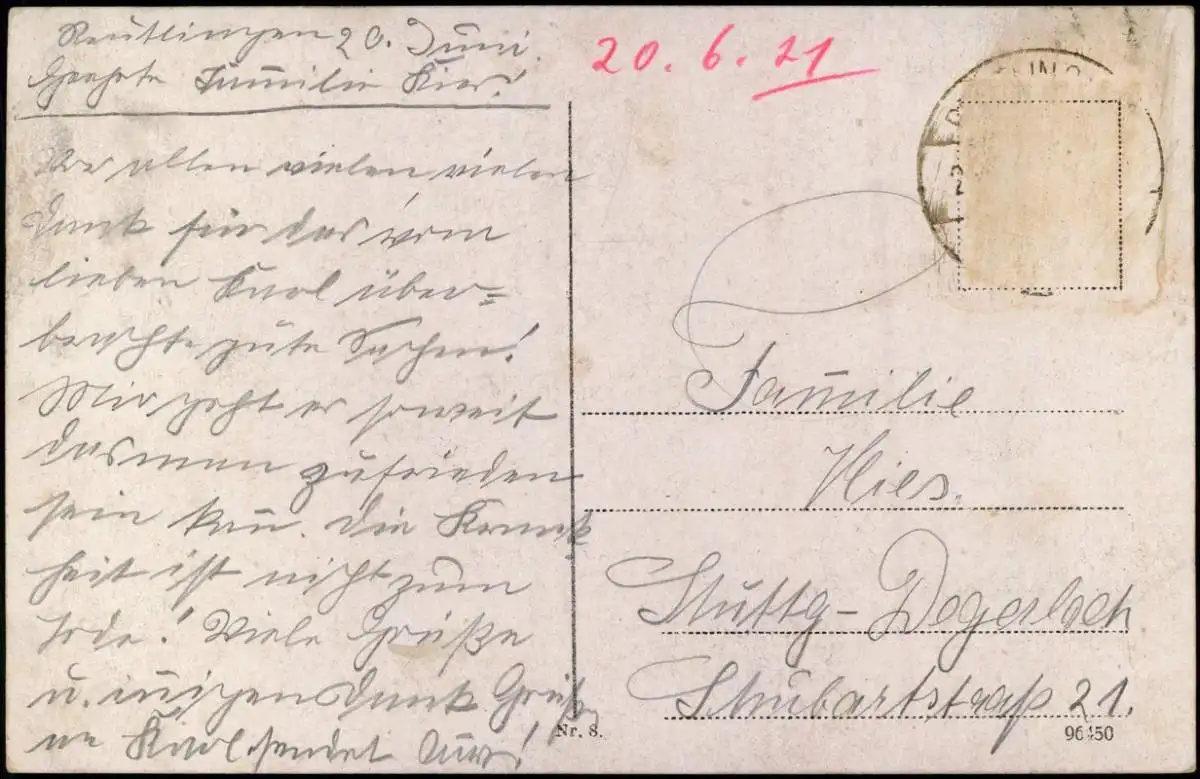 Reutlingen 20. Juni.
Geehrte Familie Kies!
Vor allen vielen vielen
Dank für das vom
lieben Karl über-
brachte gute Sachen!
Mir geht es soweit
das man zufrieden
sein kan̅. die Krank
heit ist nicht zum
Tode! Viele Grüße
u. innigen dank Grüße
an Karl sendet
20. 6. 21
Fam̅ilie
Kies.
Stuttg-Degerloch
Stubartstraß 21.
Nr. 8.
96450